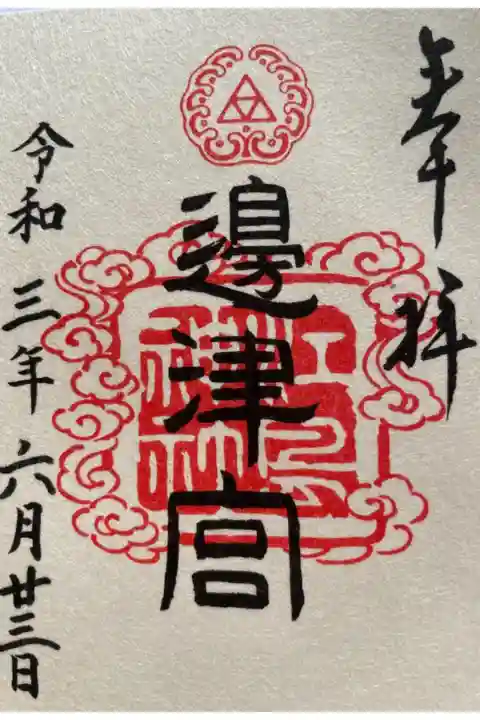 奉拝
邊津宮
令和三年六月廿三日